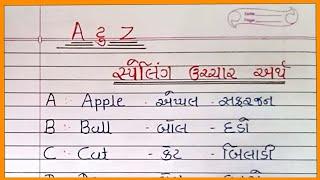 A ટુ Z
સ્પેલિંગ ઉચ્ચાર અર્થ
A :- Apple - એપ્પલ - સફરજન
B :- Ball - બૉલ - દડો
C :- Cat - કેટ - બિલાડી